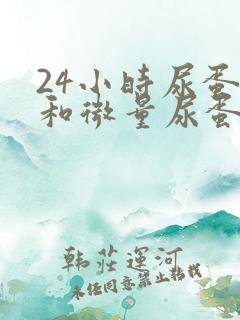 24小时尿蛋
和微量尿蛋
韩莊運河
未经同意禁止转载